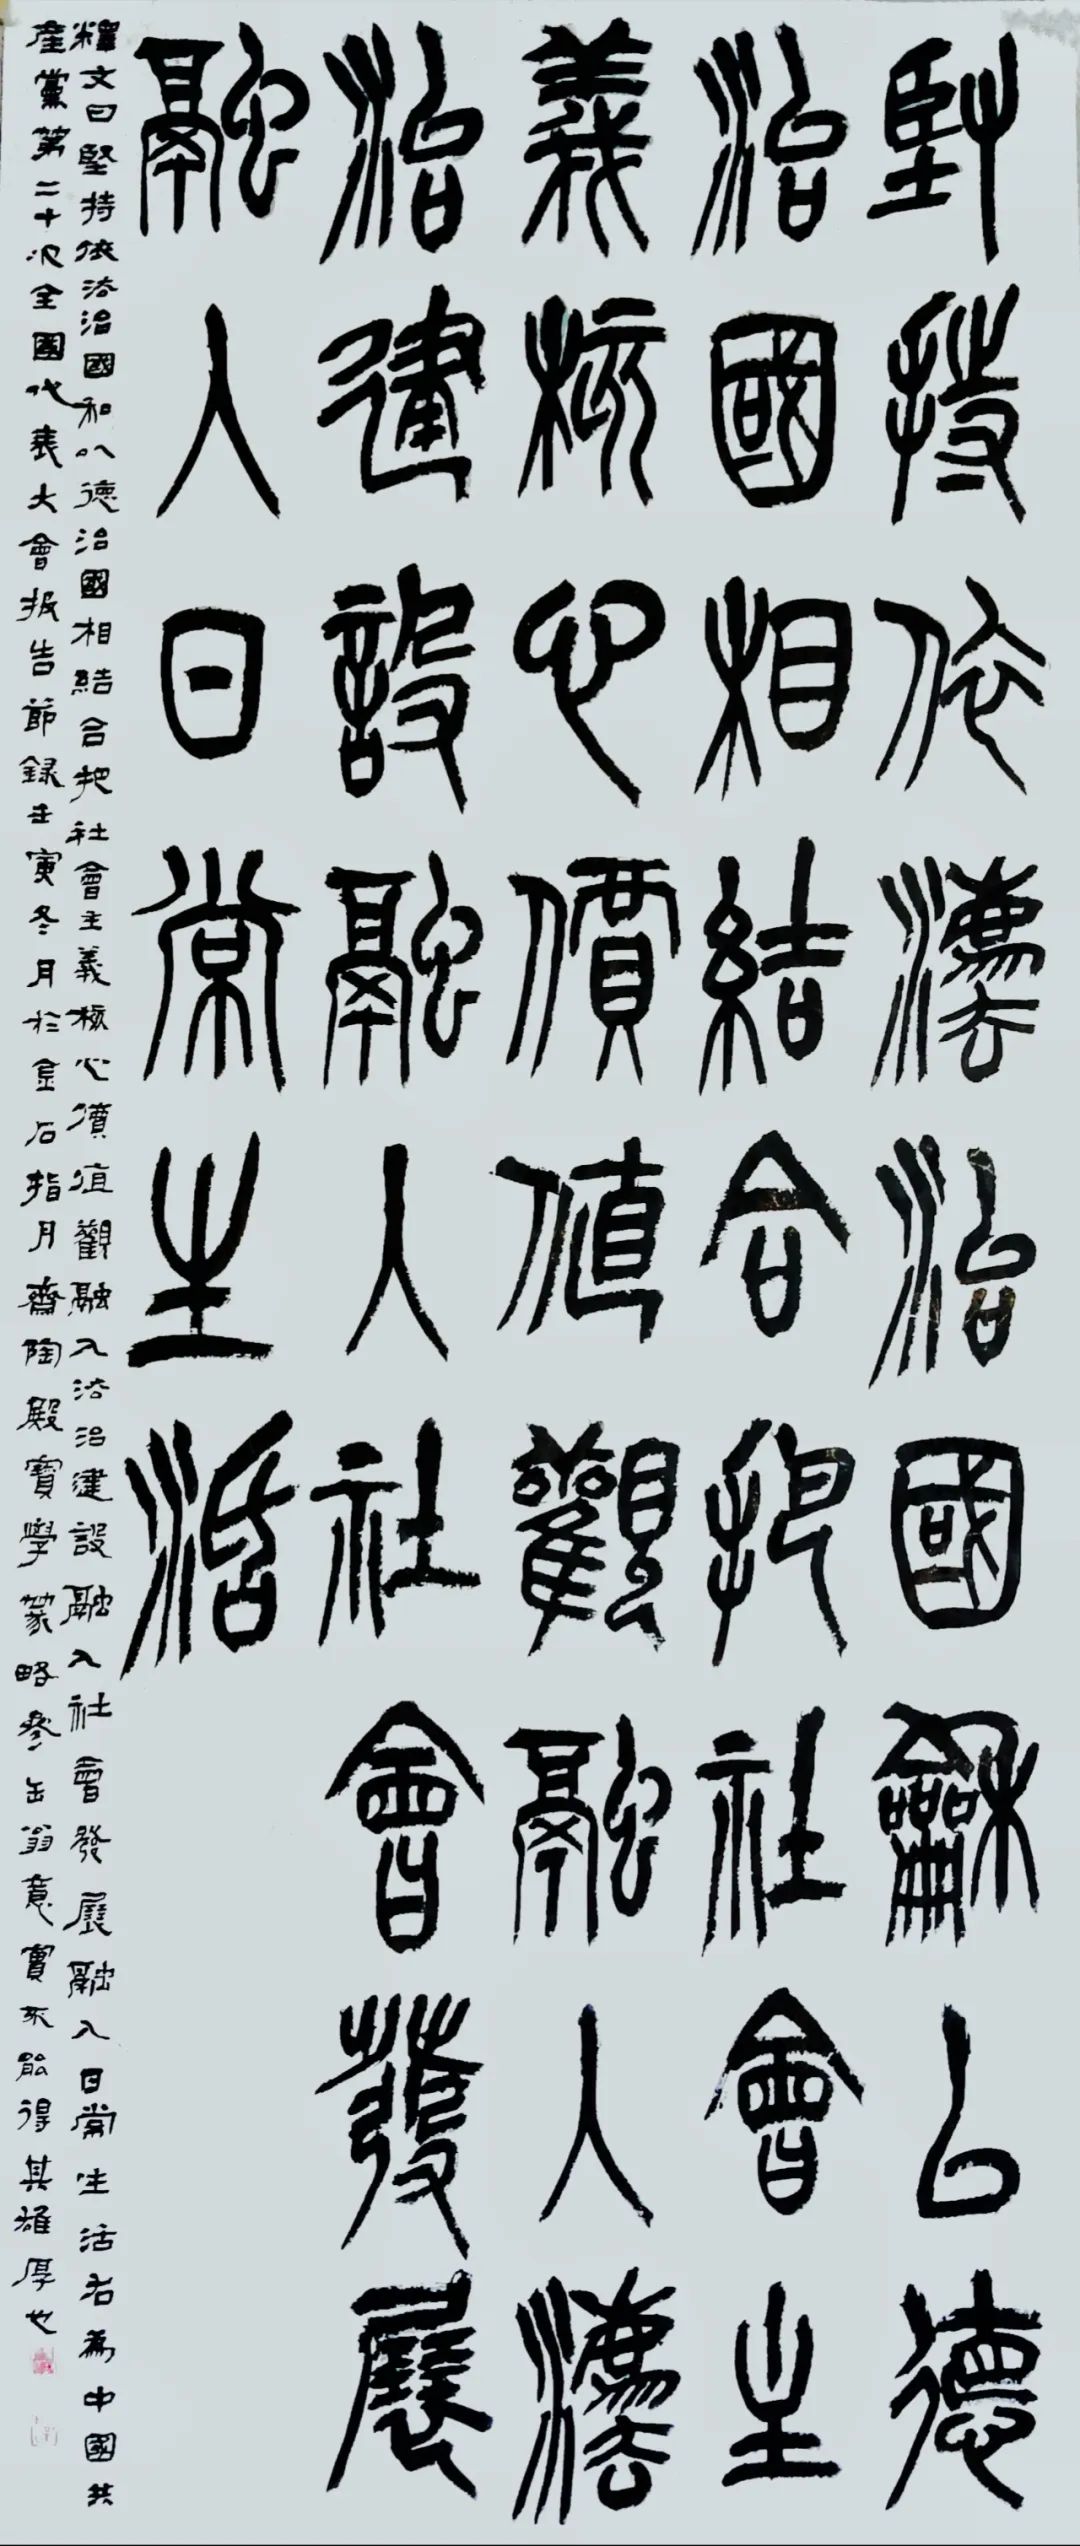 堅持依灋治國龢以德
治國相結合把社會主
義核心價值觀融入灋
治建設融入社會發展
融入日常生活
釋文曰堅持依法治國和以德治國相結合把社會主義核心價值觀融入法治建設融入社會發展融入日常生活右為中國共
產黨第二十次全國代表大會报告節録壬寅冬月於金石指月齋陶殿寶學篆略參缶翁意實不能得其雄厚也